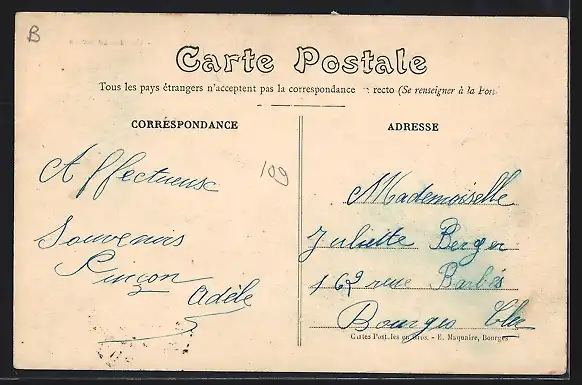 B
Carte Postale
Tous les pays étrangers n'acceptent pas la correspondance recto (Se renseigner à la Pos
CORRESPONDANCE
ADRESSE
109
Affectueux
Souvenirs
Adèle
Mademoiselle
Juliette Berger
162 rue Barbès
Bourges Cher
Cartes Postales en Gros. - E. Maquaire, Bourges